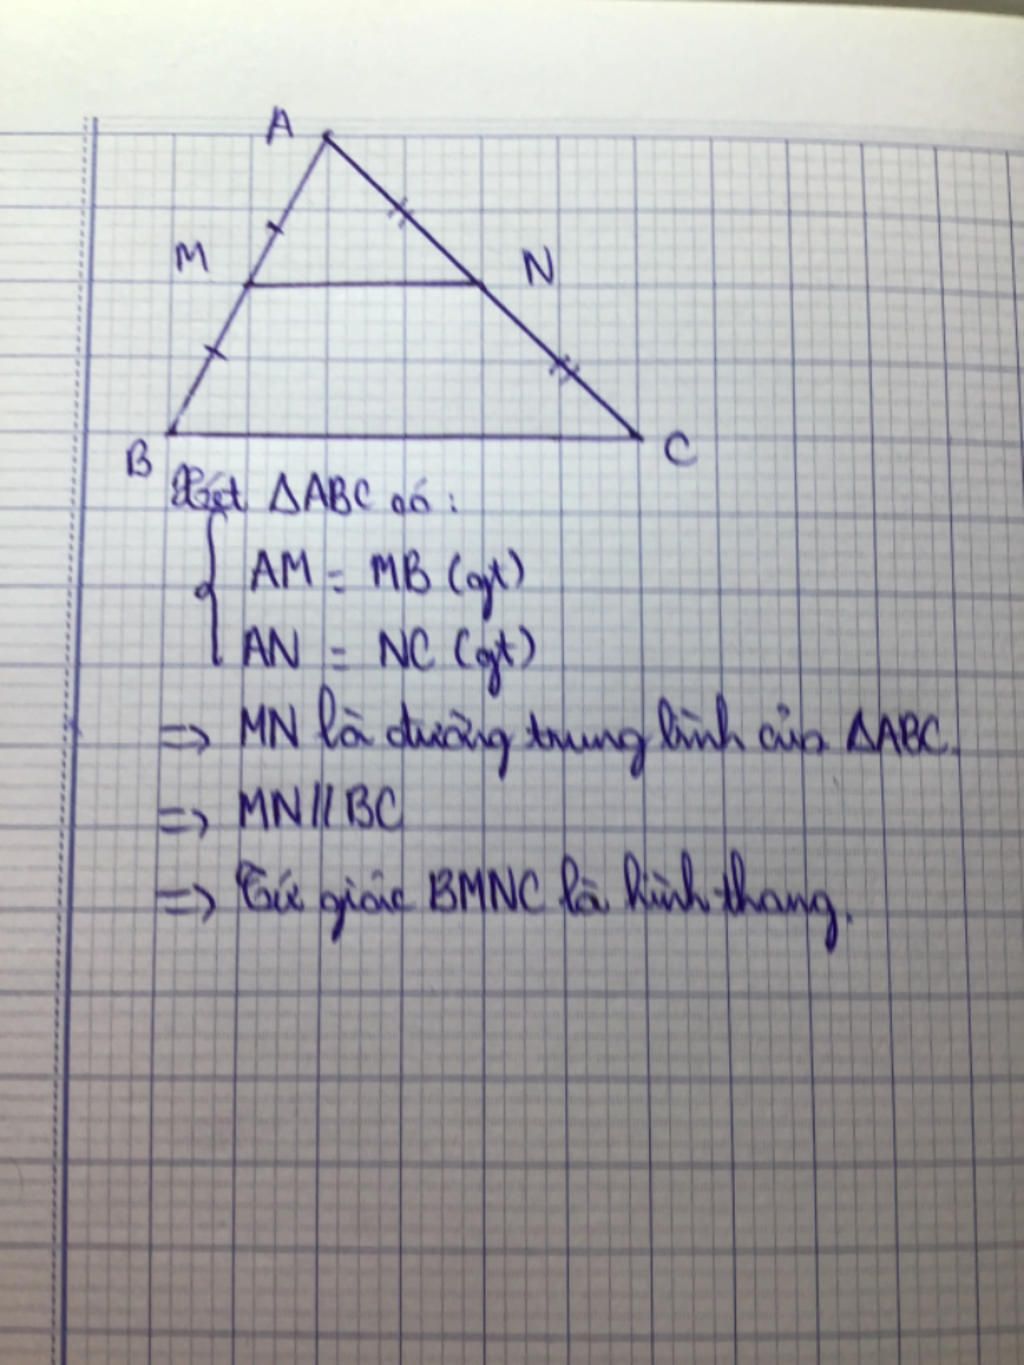 A
M
N
B
C
Xét ΔABC có:
AM = MB (gt)
AN = NC (gt)
=> MN là đường trung bình của ΔABC.
=> MN // BC
=> Tứ giác BMNC là hình thang.